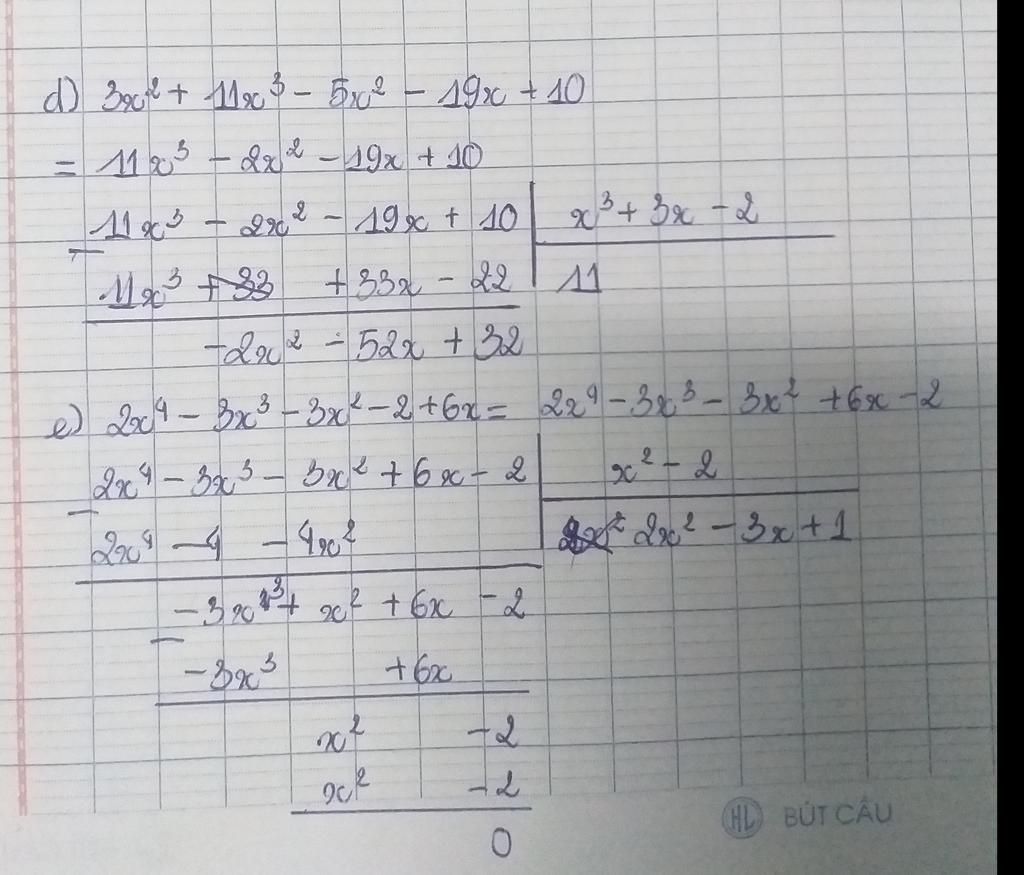 d) 3x² + 11x³ - 5x² - 19x + 10
= 11x³ - 2x² - 19x + 10
11x³ - 2x² - 19x + 10 | x³ + 3x - 2
- 11x³ + 33x - 22 | 11
-2x² - 52x + 32
e) 2x⁴ - 3x³ - 3x² - 2 + 6x = 2x⁴ - 3x³ - 3x² + 6x - 2
2x⁴ - 3x³ - 3x² + 6x - 2 | x² - 2
- 2x⁴ - 4 - 4x² | 2x² - 3x + 1
-3x³ + x² + 6x - 2
- -3x³ + 6x
x² - 2
x² - 2
0
HL BÚT CÂU